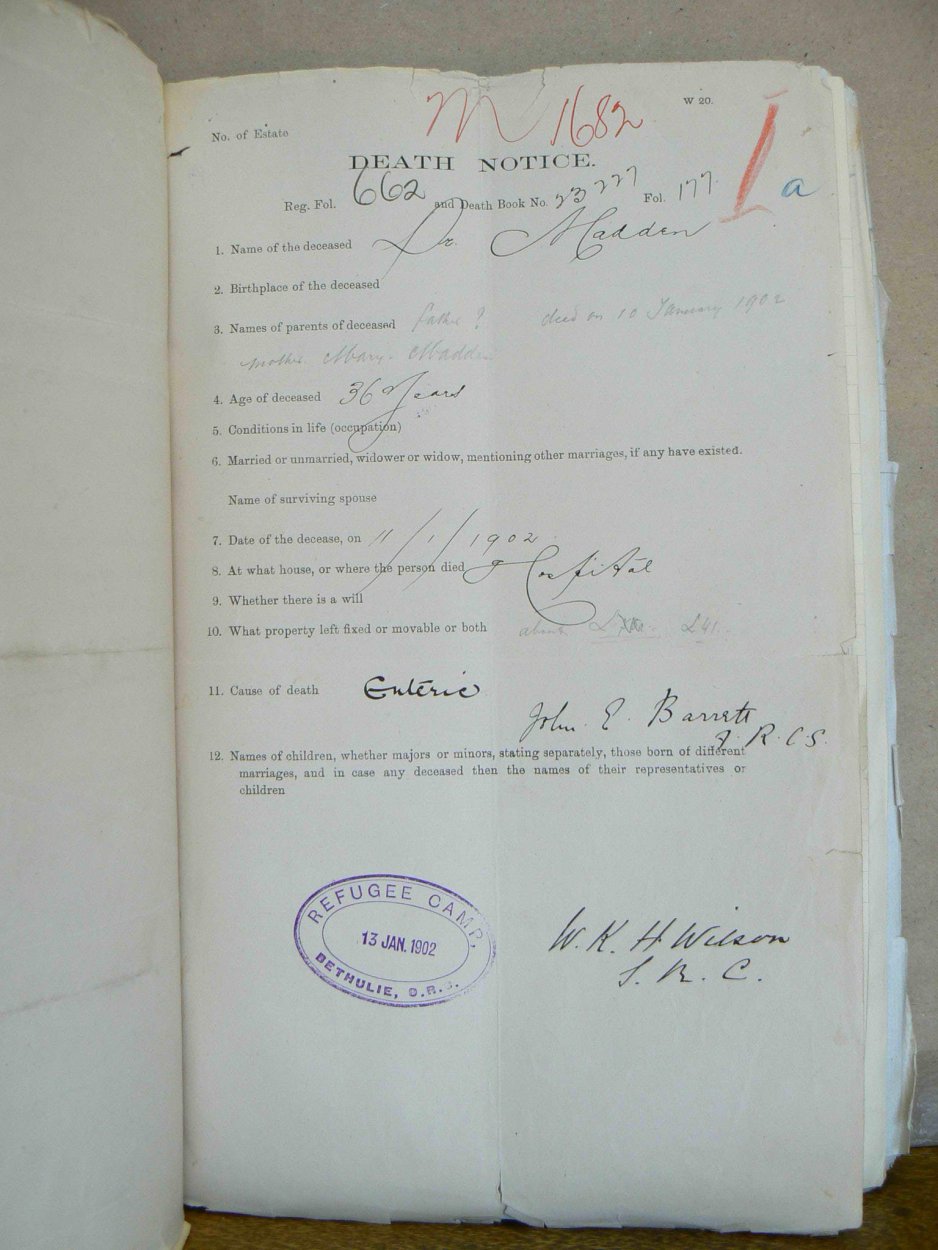 M 1682
W 20.
No. of Estate
DEATH NOTICE.
Reg. Fol. 662 and Death Book No. 23227 Fol. 177
I a
1. Name of the deceased Dr. Madden
2. Birthplace of the deceased
3. Names of parents of deceased father ? died on 10 January 1902
mother Mary Madden
4. Age of deceased 36 Years
5. Conditions in life (occupation)
6. Married or unmarried, widower or widow, mentioning other marriages, if any have existed.
Name of surviving spouse
7. Date of the decease, on 11/1/1902
8. At what house, or where the person died Hospital
9. Whether there is a will
10. What property left fixed or movable or both about £41
11. Cause of death Enteric
John E. Barrett
F.R.C.S.
12. Names of children, whether majors or minors, stating separately, those born of different
marriages, and in case any deceased then the names of their representatives or
children
REFUGEE CAMP,
13 JAN. 1902
BETHULIE, O.R.C.
W. K. H Wilson
S. R. C.